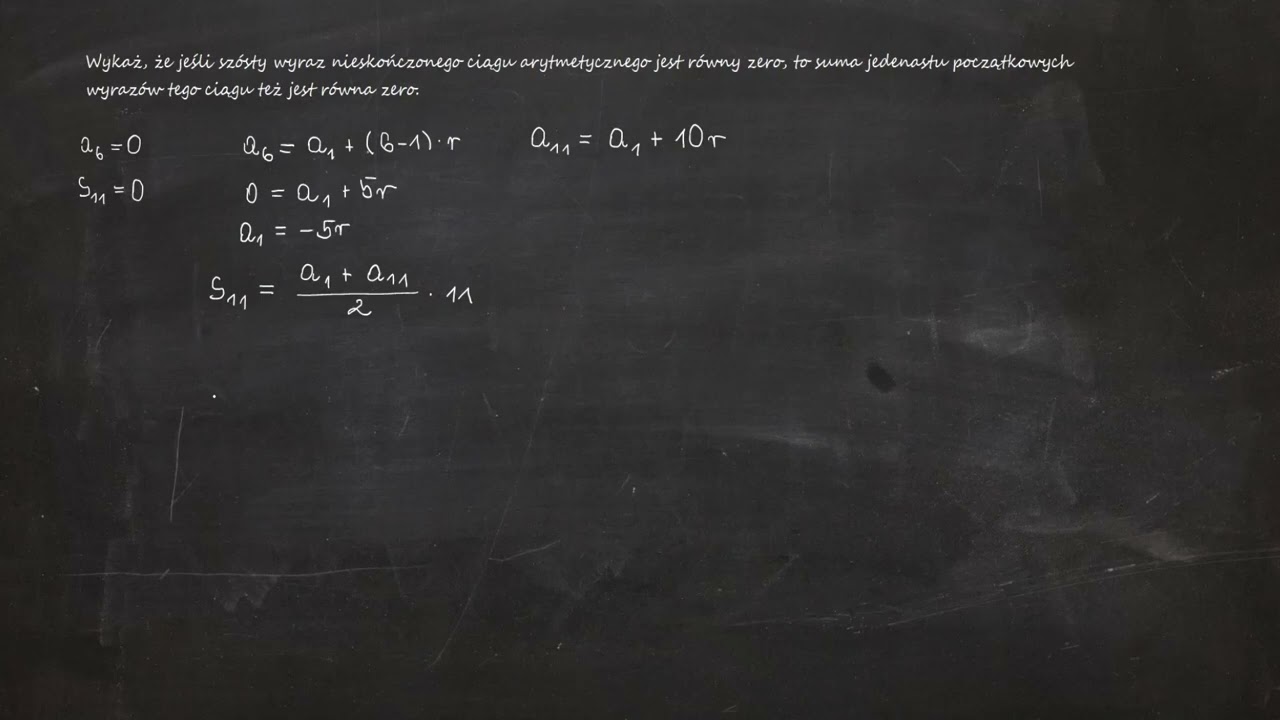 Wykaż, że jeśli szósty wyraz nieskończonego ciągu arytmetycznego jest równy zero, to suma jedenastu początkowych
wyrazów tego ciągu też jest równa zero.
a₆ = 0
S₁₁ = 0
a₆ = a₁ + (6-1) · r
0 = a₁ + 5r
a₁ = -5r
S₁₁ = (a₁ + a₁₁)/2 · 11
a₁₁ = a₁ + 10r